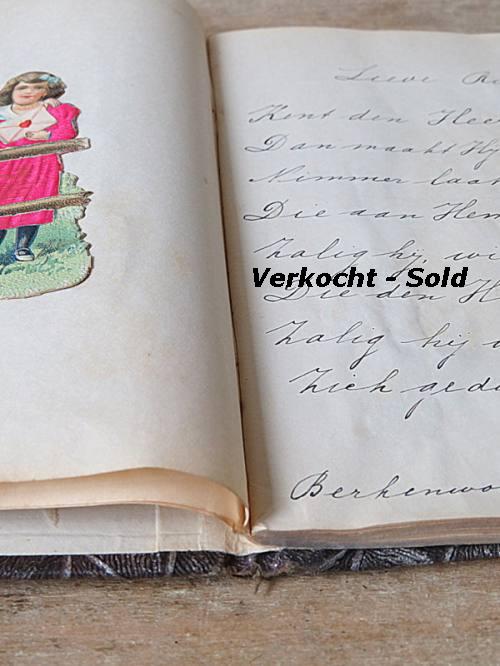 Lieve R
Kent den Hee
Dan maakt Hij
Nimmer laat
Die aan Hem
Zalig hij, wi
Verkocht - Sold
Die den H
Zalig hij
Zich ged
Berkenwo